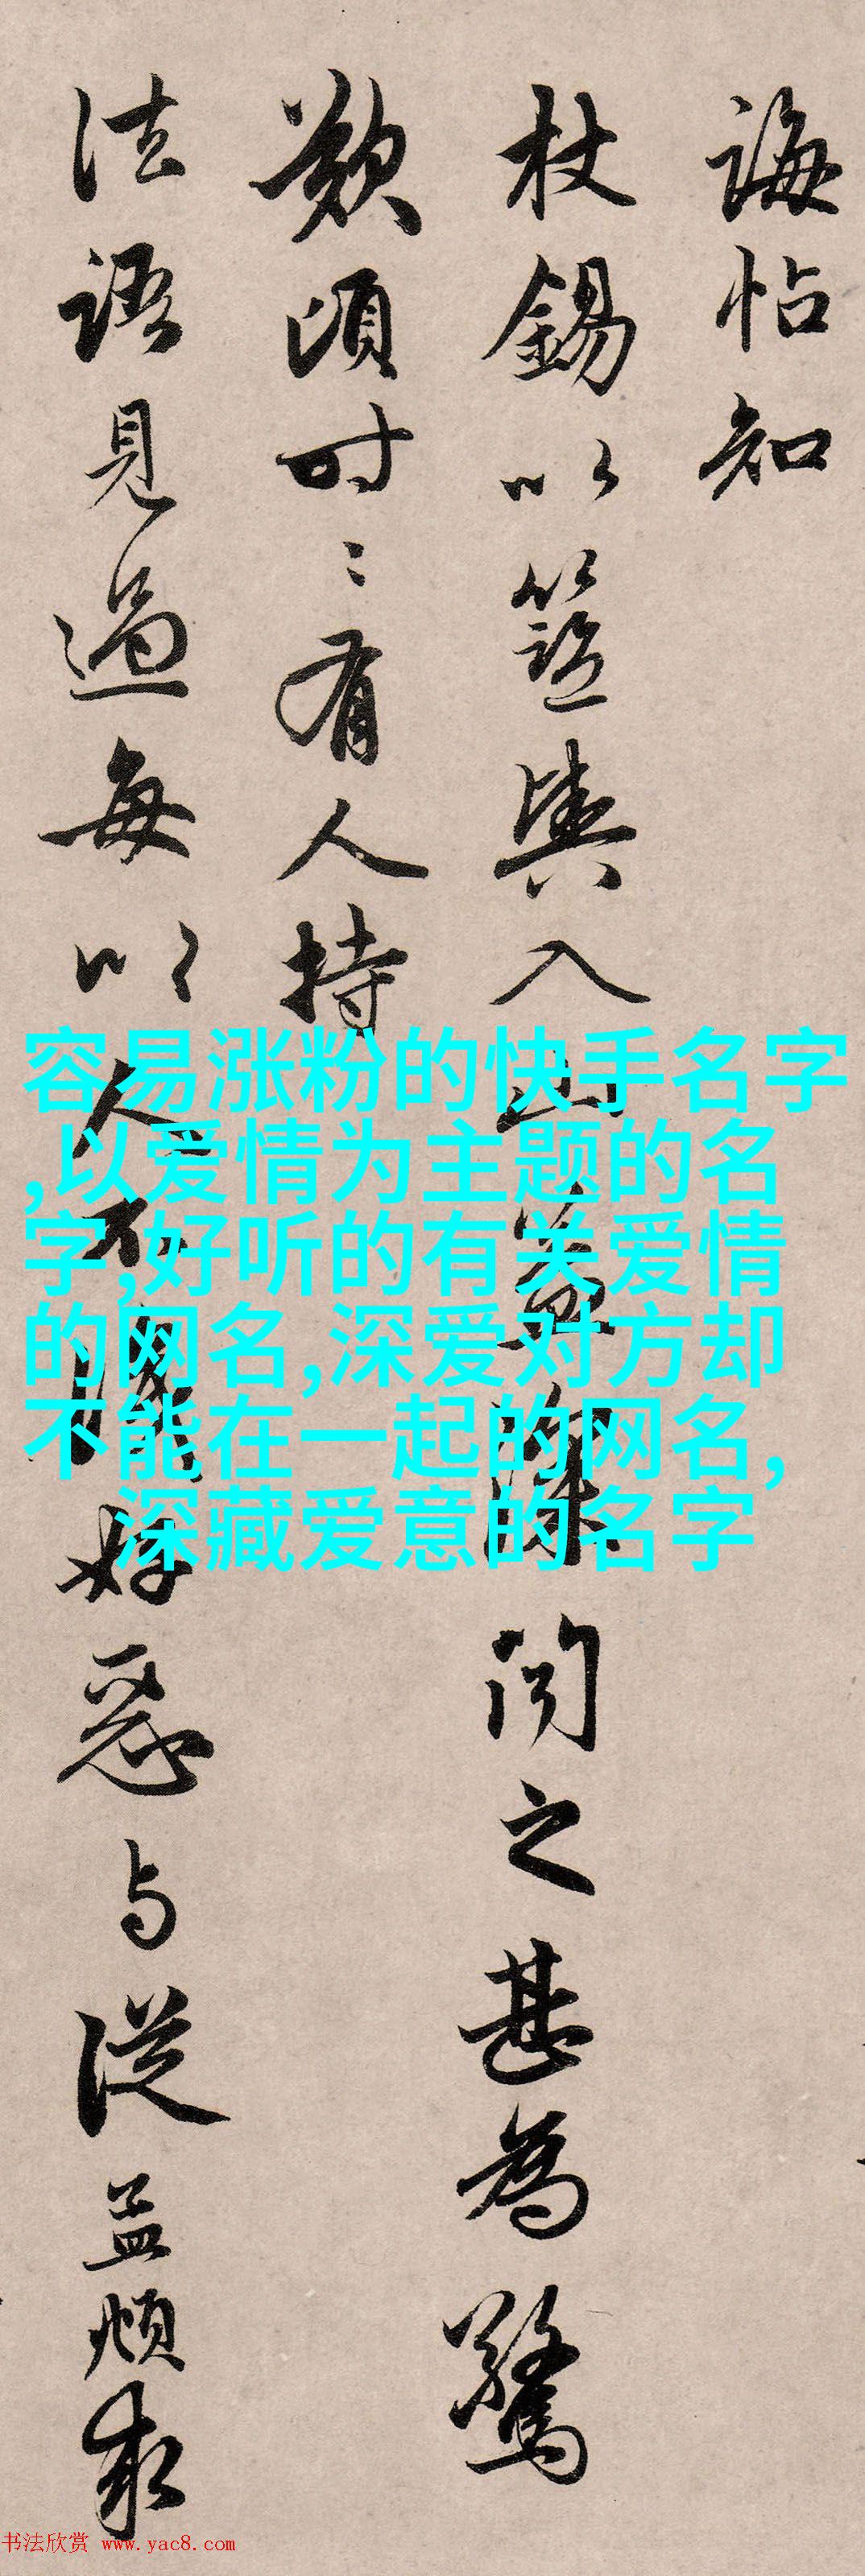 诲帖知
杖锡以篮舆入山益深闻之甚为驚
歎顷时:有人持
法语见过每以人不
好恶与从益烦求
容易涨粉的快手名字
,以爱情为主题的名
字,好听的有关爱情
的网名,深爱对方却
不能在一起的网名,
深藏爱意的名字
书法欣赏 www.yac8.com